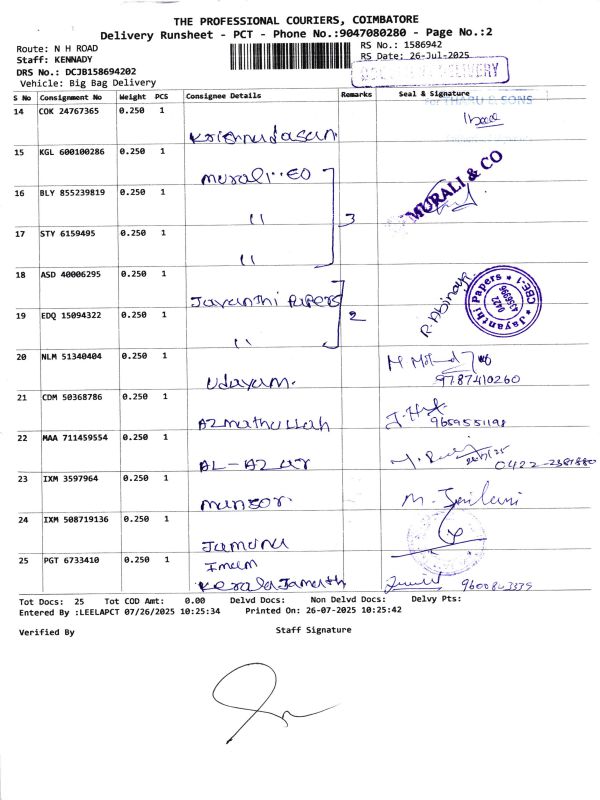 THE PROFESSIONAL COURIERS, COIMBATORE
Delivery Runsheet - PCT - Phone No.:9047080280 - Page No.:2
Route: N H ROAD
RS No.: 1586942
Staff: KENNADY
RS Date: 26-Jul-2025
DRS No.: DCJB158694202
Vehicle: Big Bag Delivery
S No Consignment No Weight PCS Consignee Details Remarks Seal & Signature
14 COK 24767365 0.250 1
Krishnadasan
15 KGL 600100286 0.250 1
murali
MURALI & CO
16 BLY 855239819 0.250 1
" 3
17 STY 6159495 0.250 1
"
18 ASD 40006295 0.250 1
Jayanthi Papers
R. Abinaya
Jayanthi Papers CBE-1 0422
19 EDQ 15094322 0.250 1
" 2
20 NLM 51340404 0.250 1
Udayam. 9787410260
21 CDM 50368786 0.250 1
Azmathullah
22 MAA 711459554 0.250 1
AL-AZ
23 IXM 3597964 0.250 1
mansor.
24 IXM 508719136 0.250 1
Jamana
25 PGT 6733410 0.250 1
Imam
Kerala Jamath
Tot Docs: 25 Tot COD Amt: 0.00 Delvd Docs: Non Delvd Docs: Delvy Pts:
Entered By :LEELAPCT 07/26/2025 10:25:34 Printed On: 26-07-2025 10:25:42
Verified By Staff Signature